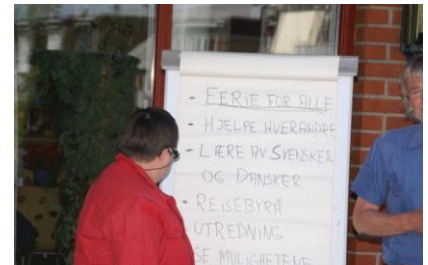 - FERIE FOR ALLE
- HJELPE HVERANDRE
- LÆRE AV SVENSKER
OG DANSKER
- REISEBYRÅ
UTREDNING
SE MULIGHETENE